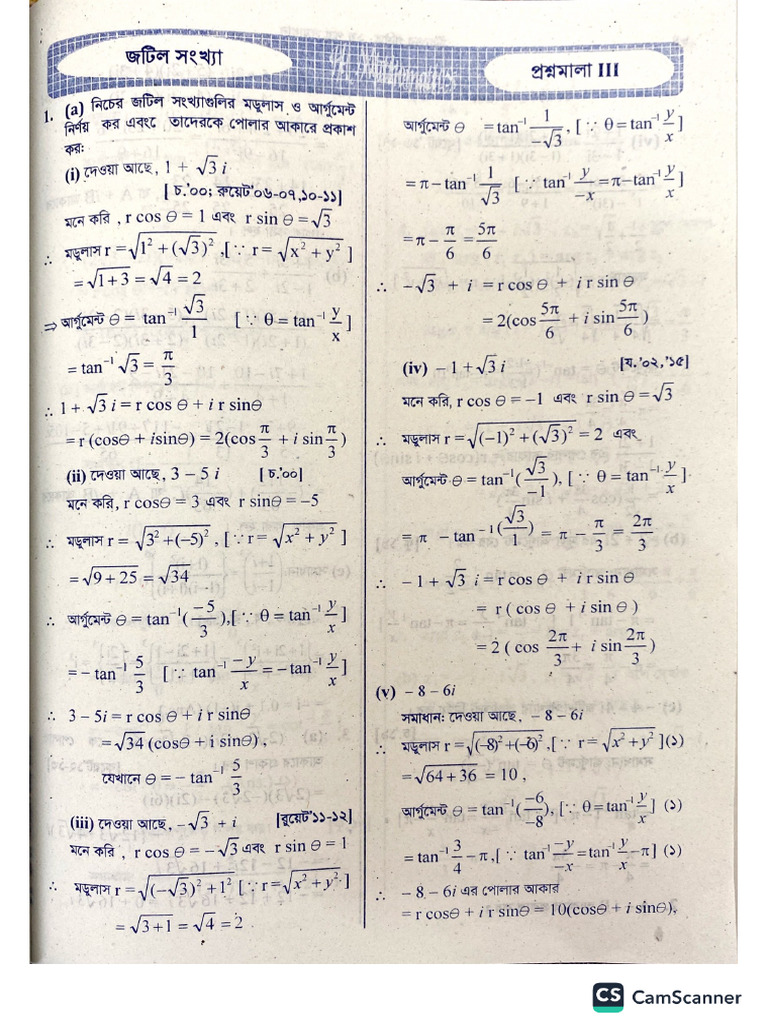 জটিল সংখ্যা
প্রশ্নমালা III
1. (a) নিচের জটিল সংখ্যাগুলির মডুলাস ও আর্গুমেন্ট
নির্ণয় কর এবংং তাদেরকে পোলার আকারে প্রকাশ
কর:
(i) দেওয়া আছে, 1 + √3 i
[ চ.'০০; রুয়েট'০৬-০৭,১০-১১]
মনে করি , r cos θ = 1 এবং r sin θ = √3
∴ মডুলাস r = √(1² + (√3)²) ,[ ∵ r = √(x² + y²) ]
= √(1+3) = √4 = 2
⇒ আর্গুমেন্ট θ = tan⁻¹ √3/1 [ ∵ θ = tan⁻¹ y/x ]
= tan⁻¹ √3 = π/3
∴ 1 + √3 i = r cos θ + i r sinθ
= r (cosθ + isinθ) = 2(cos π/3 + i sin π/3)
(ii) দেওয়া আছে, 3 – 5 i [ চ.'০০]
মনে করি, r cosθ = 3 এবং r sinθ = –5
∴ মডুলাস r = √(3² +(–5)²) , [ ∵ r = √(x² + y²) ]
= √(9 + 25) = √34
∴ আর্গুমেন্ট θ = tan⁻¹(–5/3),[ ∵ θ = tan⁻¹ y/x ]
= – tan⁻¹ 5/3 [ ∵ tan⁻¹ –y/x = – tan⁻¹ y/x ]
∴ 3 – 5i = r cos θ + i r sinθ
= √34 (cosθ + i sinθ) ,
যেখানে θ = – tan⁻¹ 5/3
(iii) দেওয়া আছে, –√3 + i [বুয়েট'১১-১২]
মনে করি , r cos θ = – √3 এবং r sin θ = 1
∴ মডুলাস r = √((–√3)² + 1²) [ ∵ r = √(x² + y²) ]
= √(3+1) = √4 = 2
আর্গুমেন্ট θ = tan⁻¹ 1/–√3 , [ ∵ θ = tan⁻¹ y/x ]
= π – tan⁻¹ 1/√3 [ ∵ tan⁻¹ y/–x = π – tan⁻¹ y/x ]
= π – π/6 = 5π/6
∴ – √3 + i = r cos θ + i r sin θ
= 2(cos 5π/6 + i sin 5π/6 )
(iv) – 1 + √3 i [য.'০২,'১৫]
মনে করি, r cos θ = –1 এবং r sin θ = √3
∴ মডুলাস r = √((–1)² + (√3)²) = 2 এবং
আর্গুমেন্ট θ = tan⁻¹( √3/–1 ), [ ∵ θ = tan⁻¹ y/x ]
= π – tan⁻¹( √3/1 ) = π – π/3 = 2π/3
∴ – 1 + √3 i = r cos θ + i r sin θ
= r ( cos θ + i sin θ )
= 2 ( cos 2π/3 + i sin 2π/3 )
(v) – 8 – 6i
সমাধান: দেওয়া আছে, – 8 – 6i
∴ মডুলাস r = √((–8)² +(–6)²) ,[ ∵ r = √(x² + y²) ](১)
= √(64 + 36) = 10 ,
আর্গুমেন্ট θ = tan⁻¹( –6/–8 ), [ ∵ θ = tan⁻¹ y/x ] (১)
= tan⁻¹ 3/4 – π ,[ ∵ tan⁻¹ –y/–x = tan⁻¹ y/x – π] (১)
∴ – 8 – 6i এর পোলার আকার
= r cosθ + i r sinθ = 10(cosθ + i sinθ),
CS CamScanner